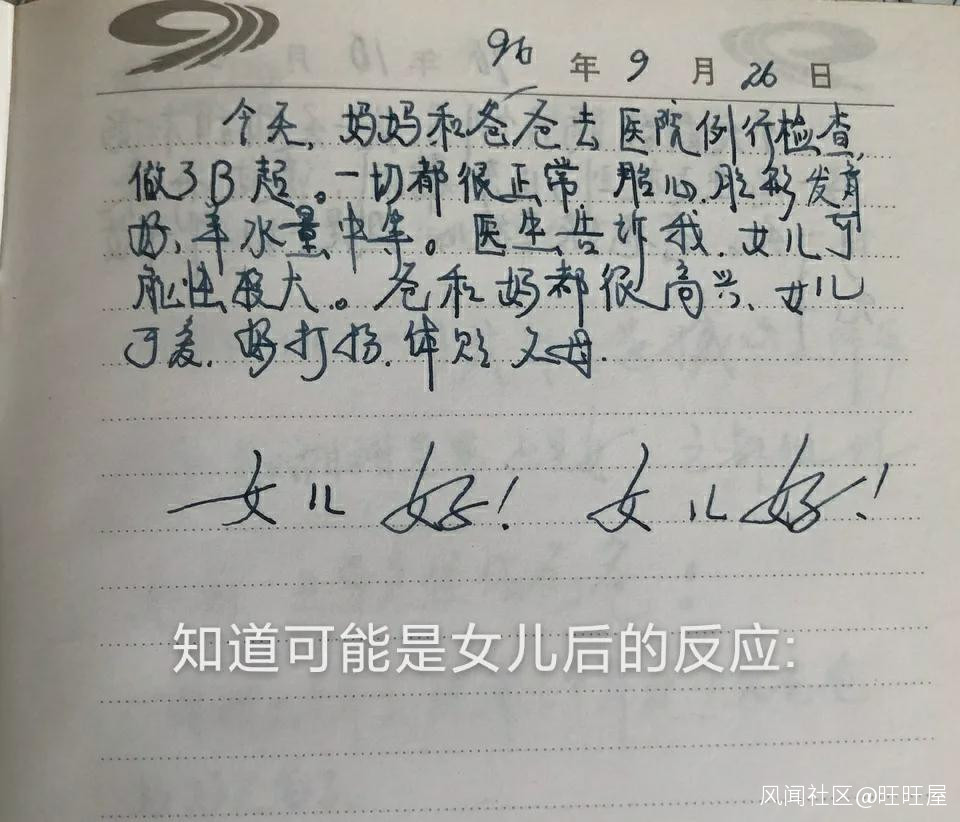 96年9月26日
今天,妈妈和爸爸去医院例行检查,
做了B超。一切都很正常,胎心.胎形发育
好,羊水量中等。医生告诉我.女儿可
能性极大。爸和妈都很高兴、女儿
可爱.好打扮.体贴父母.
女儿好!女儿好!
知道可能是女儿后的反应:
风闻社区@旺旺屋